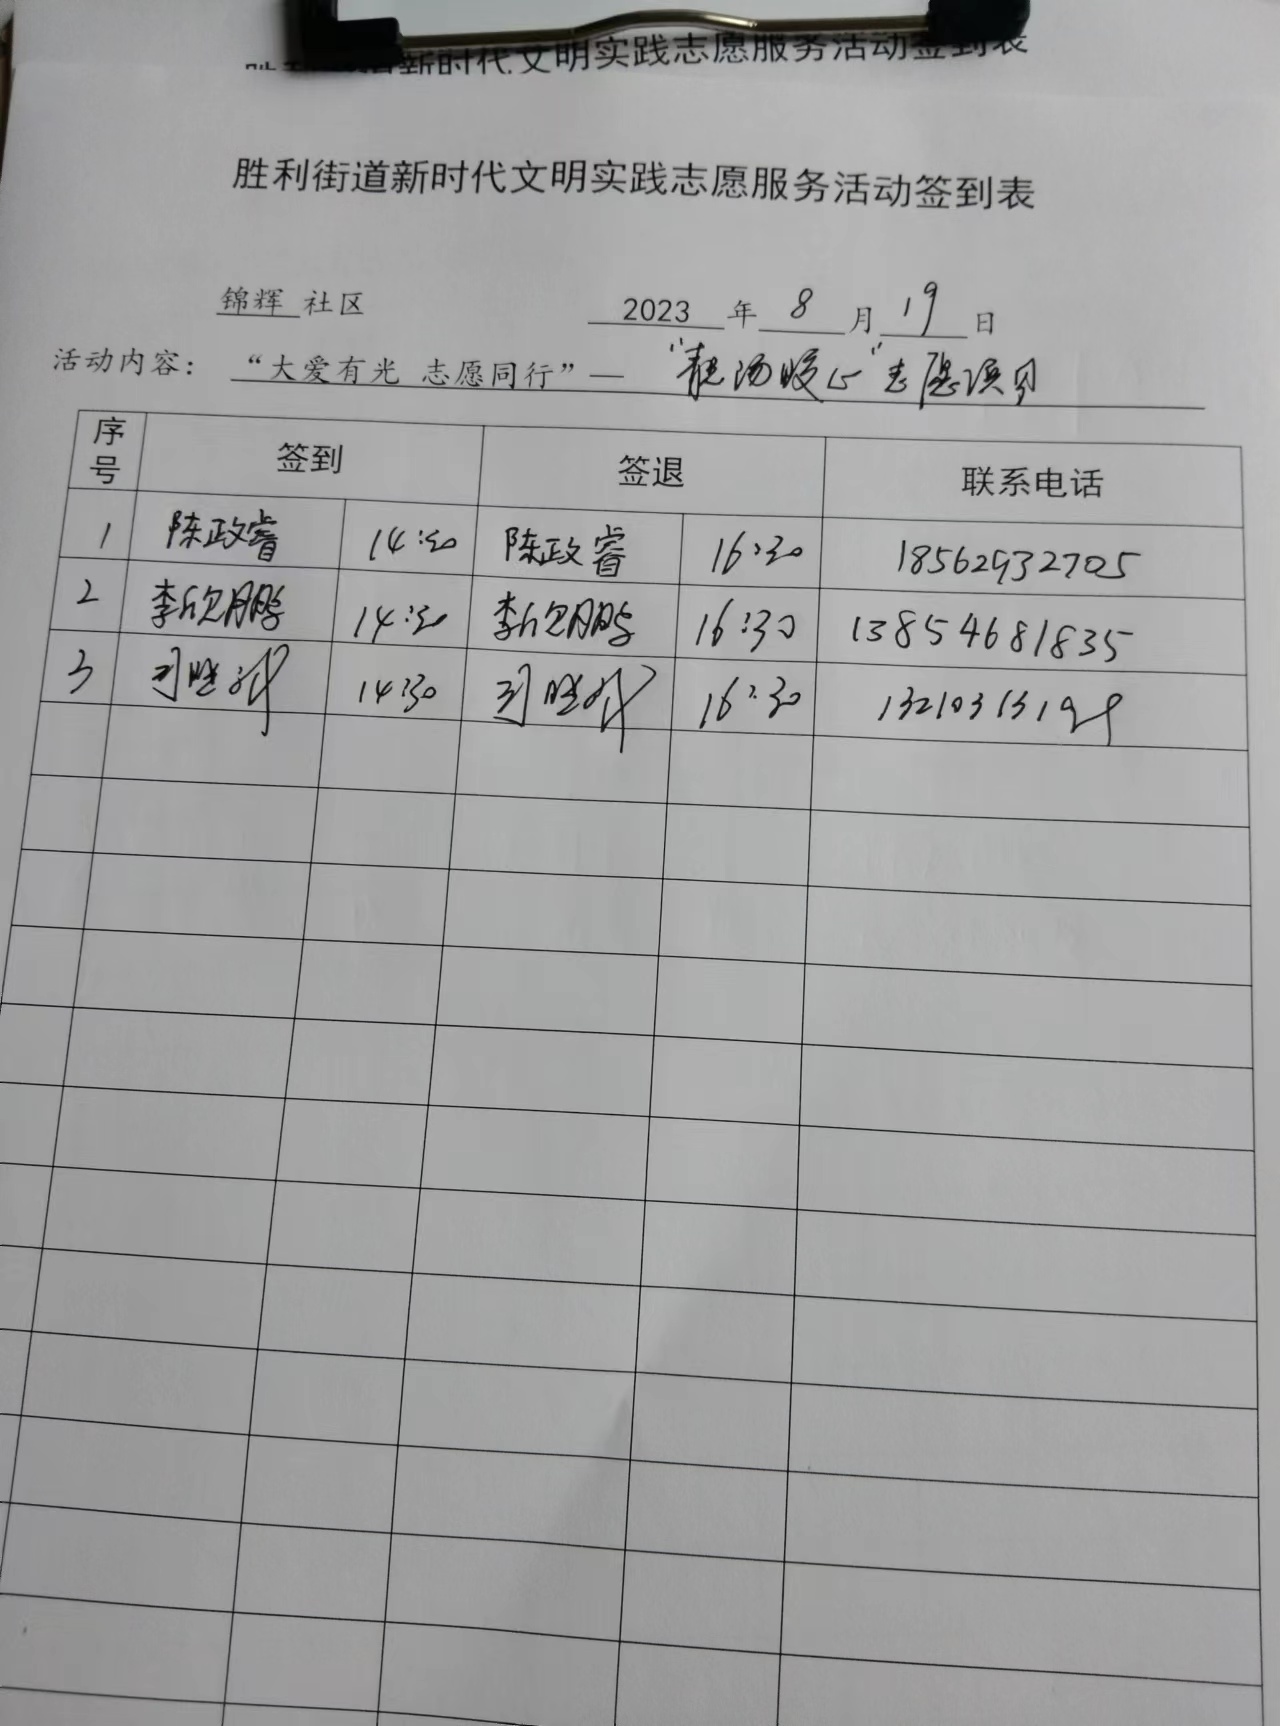 新时代文明实践志愿服务活动签到表
胜利街道新时代文明实践志愿服务活动签到表
锦辉 社区 2023 年 8 月 19 日
活动内容： “大爱有光 志愿同行”— “靓汤暖心”志愿项目
序号 签到 签退 联系电话
1 陈政睿 14:30 陈政睿 16:30 18562932705
2 李欣鹏 14:30 李欣鹏 16:30 13854681835
3 14:30 16:30